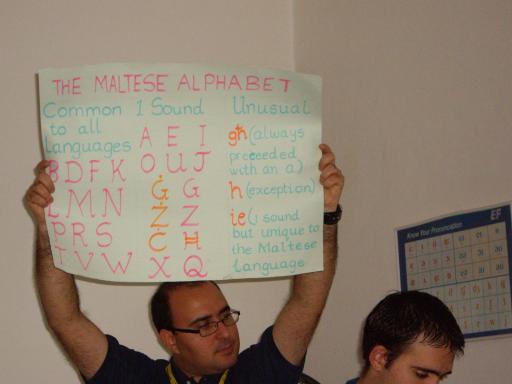 THE MALTESE ALPHABET
Common to all languages
B D F K
L M N
P R S
T V W
1 Sound
A E I
O U J
Ġ G
Ż Z
Ċ Ħ
X Q
Unusual
għ (always
preceeded
with an a)
h (exception)
ie (i sound
but unique to
the Maltese
language
Know Your Pronunciation
EF